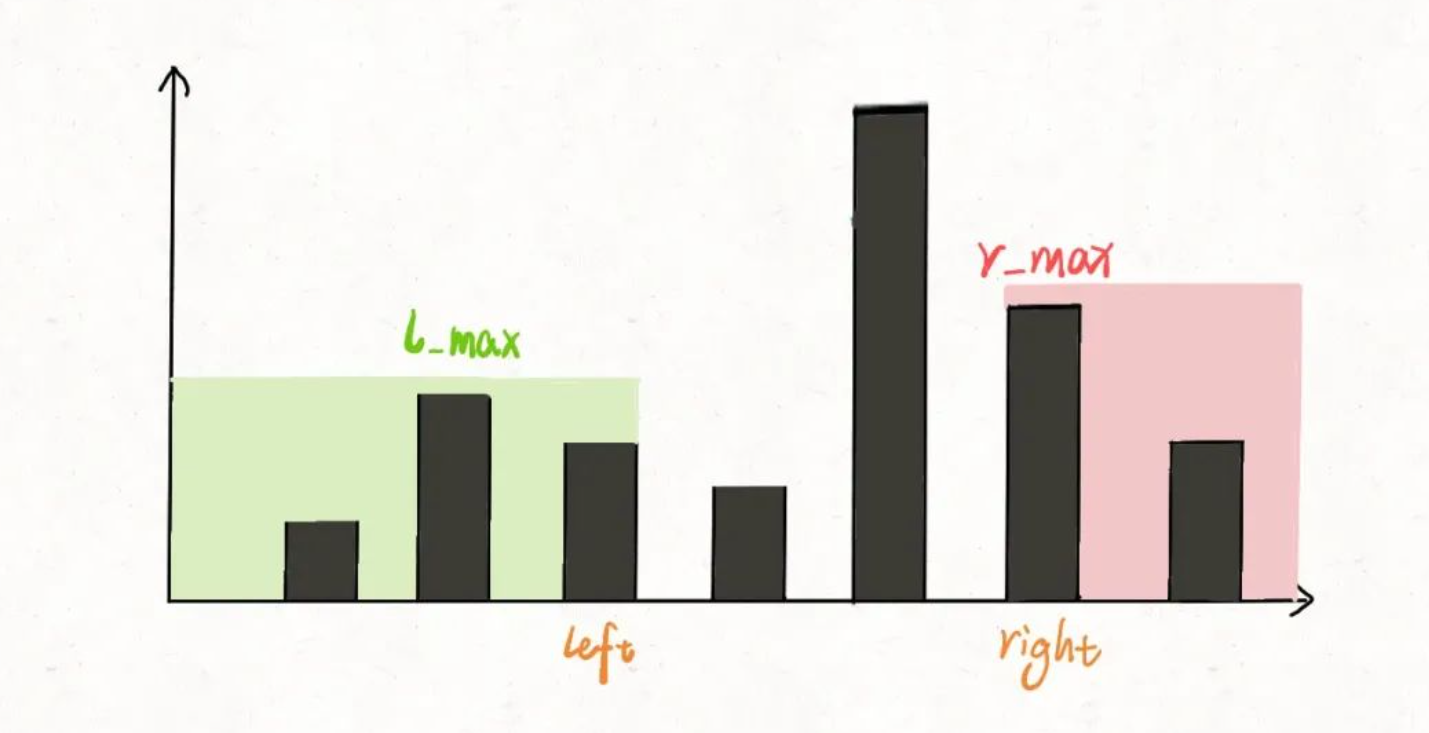 r_max
l_max
left
right